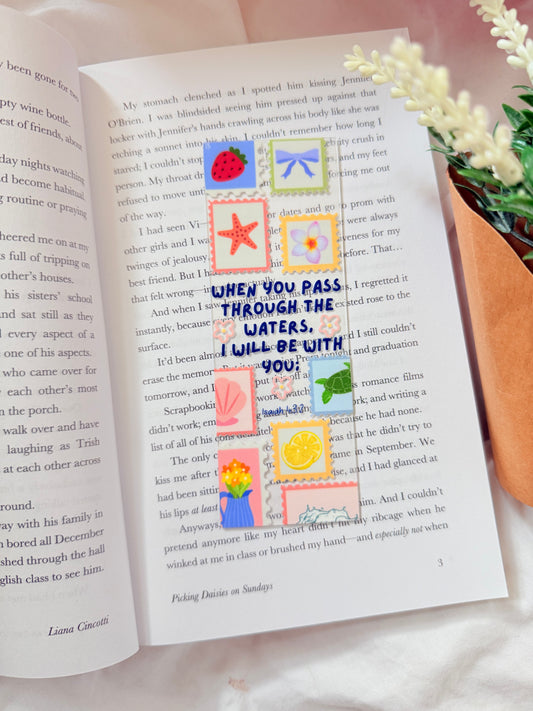 y been gone for two
pty wine bottle.
est of friends, about
day nights watching
d become habitual
g routine or praying
heered me on at my
s full of tripping on
other's houses.
his sisters' school
nd sat still as they
d every aspect of a
one of his aspects.
who came over for
y each other's most
n the porch.
walk over and have
laughing as Trish
at each other across
round.
vay with his family in
n bored all December
shed through the hall
glish class to see him.
Liana Cincotti
My stomach clenched as I spotted him kissing Jennifer
O'Brien. I was blindsided seeing him pressed up against that
locker with Jennifer's hands crawling across his body like she was
etching a sonnet into his skin. I couldn't remember how long I
stared; I couldn't sto crush in
person. My throat d and my feet
refused to move unt forcing me out
of the way.
I had seen Vi for dates and go to prom with
other girls and I wa were always
twinges of jealousy. iveness for my
best friend. But I ha before. That…
that felt wrong—in
And when I saw Jennifer taking his I regretted it
instantly, because every existed rose to the
surface.
It'd been almost I still couldn't
erase the memory. But it was tonight and graduation
tomorrow, and I put this off
Scrapbooking romance films
didn't work; em and writing a
list of all of his cons because he had none.
The only was that he didn't try to
kiss me after came in September. We
had been sitting ise, and I had glanced at
his lips at least him. And I couldn't
Anyways,
pretend anymore like my heart didn't hit my ribcage when he
winked at me in class or brushed my hand—and especially not when
3
Picking Daisies on Sundays
WHEN YOU PASS
THROUGH THE
WATERS,
I WILL BE WITH
YOU;
Isaiah 43:2